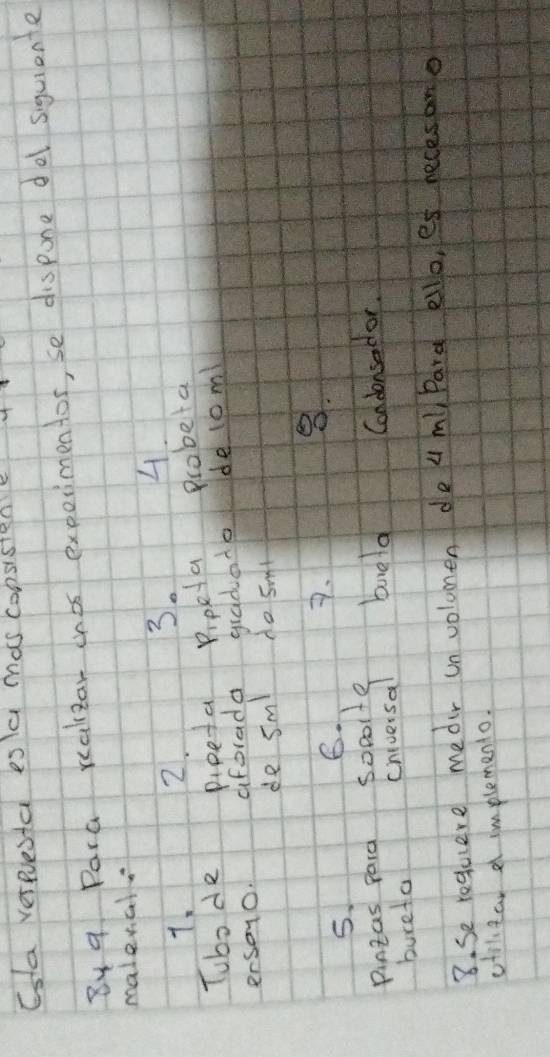 Esta respuesta es la mas consistente
8 y 9 Para realizar unos experimentos, se dispone del siguiente
material:
1. 2. 3. 4.
Tubo de Pipeta Pipeta Probeta
ensayo. aforada graduado de 10 ml
de 5ml de 5ml
5. 6. 7. 8.
Pinzas para Soporte bureta Condensador.
bureta Universal
8. Se requiere medir un volumen de 4 ml, Para ello, es necesario
utilizar el implemento.